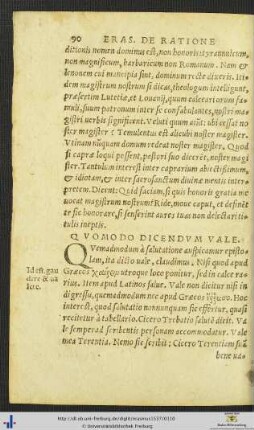 90 ERAS. DE RATIONE
ditionis nomen dominus est, non honoris: tyrannicum,
non magnificum, barbaricum non Romanum. Nam
lenonem cui mancipia sunt, dominum recte dixeris. Iti
dem magistrum nostrum si dicas, theologum intelligunt,
præsertim Lutetiæ, & Louanij, quum
suum patronum inter se confabulantes, nostri ma
gistri uerbis significent. Veluti quum aiunt: ubi cessat no
ster magister? Temulentus est alicubi noster magister.
Vtinam nunquam domum redeat noster magister. Quod
si capræ loqui possent, pastori suo dicerent, nostri magi
ster. Tantulum interest inter caprarium
& idiotam, & inter sacrosanctum diuinæ mentis interpre
tem. Dicent: Quid faciam, si quis honoris gratia me
uocat magistrum nostrum? Ride, moue caput, et
te sic honorare, si senserint aures tuas non delectari ti
tulis ineptis.
QVOMODO DICENDVM VALE.
Quemadmodum à salutatione auspicamur episto
lam, ita dicto uale, claudimus. Nisi quod apud
Græcos χαίρειν utroque loco ponitur, sed in calce rarius.
Item apud Latinos salue. Vale non dicitur nisi in
digressu, quemadmodum nec apud Græcos ὑγίαινε. Hoc
interest, quod salutatio nonnunquam sic effertur, quasi
recitetur à tabellario. Cicero Trebatio salutem dicit. Va
le semper ad scribentis personam accommodatur. Vale
mea Terentia. Nemo sic scribit: Cicero Terentiam suam
bene ua-
Id est, gau
dere & ua
lere.
http://dl.ub.uni-freiburg.de/diglit/
© Universitätsbibliothek Freiburg